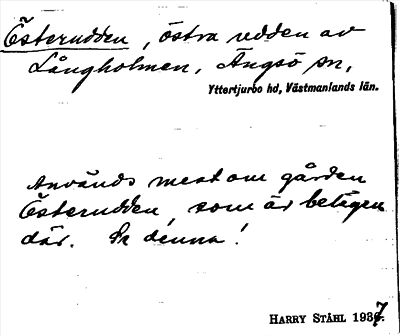 Österudden, östra udden av
Långholmen, Ängsö sn,
Yttertjurbo hd, Västmanlands län.
Används mest om gården
Österudden, som är belägen
där. Se denna!
HARRY STÅHL 1937.